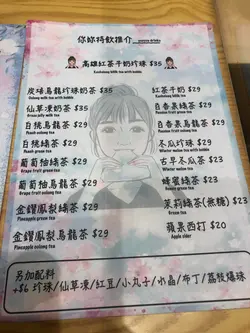 你妳特飲推介
高雄紅茶牛奶珍珠 $35
Kaohsiung milk tea with bubble
炭培烏龍珍珠奶茶 $35
Oolong milk tea with bubble
仙草凍奶茶 $35
Grass jelly milk tea
白桃烏龍茶 $29
Peach oolong tea
白桃綠茶 $29
Peach green tea
葡萄柚綠茶 $29
Grape fruit green tea
葡萄柚烏龍茶 $29
Grape fruit oolong tea
金鑽鳳梨綠茶 $29
Pineapple green tea
金鑽鳳梨烏龍茶 $29
Pineapple oolong tea
紅茶牛奶 $29
Kaohsiung milk tea
百香果綠茶 $29
Passion fruit green tea
百香果烏龍茶 $29
Passion fruit oolong tea
冬瓜珍珠 $29
Winter melon tea with bubble
古早冬瓜茶 $23
Winter melon tea
蜂蜜綠茶 $23
Honey green tea
茉莉綠茶(無糖) $23
Green tea
蘋果西打 $20
Apple cider
另加配料
+$6 珍珠/仙草凍/紅豆/小丸子/水晶/布丁/荔枝爆珠